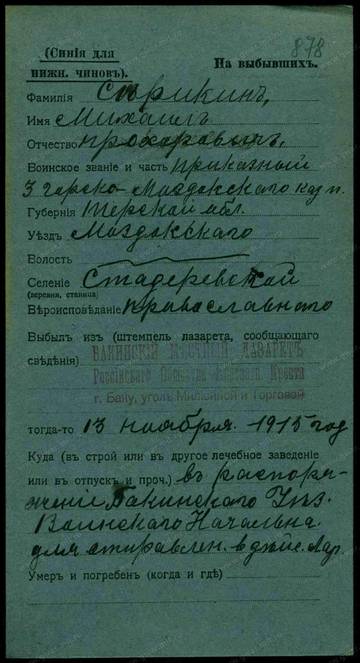 878
(Синія для
нижн. чиновъ).
На выбывшихъ.
Фамилія Сприкинъ,
Имя Михаилъ
Отчество Прохоровичъ,
Воинское званіе и часть приказный
3 Горско-Моздокскаго каз п.
Губернія Терской обл.
Уѣздъ Моздокскаго
Волость
Селеніе Стадеревской
(деревня, станица)
Вѣроисповѣданіе православнаго
Выбылъ изъ (штемпель лазарета, сообщающаго
свѣдѣнія) БАКИНСКІЙ МѢСТНЫЙ ЛАЗАРЕТЪ
Россійскаго Общества Краснаго Креста
г. Баку, уголъ Милюнной и Торговой
тогда-то 13 ноября. 1915 год
Куда (въ строй или въ другое лечебное заведеніе
или въ отпускъ и проч.) въ распоря-
женіи Бакинскаго Уѣз.
Воинскаго Начальна
для отправлен. в дѣйс. Ар.
Умеръ и погребенъ (когда и гдѣ)